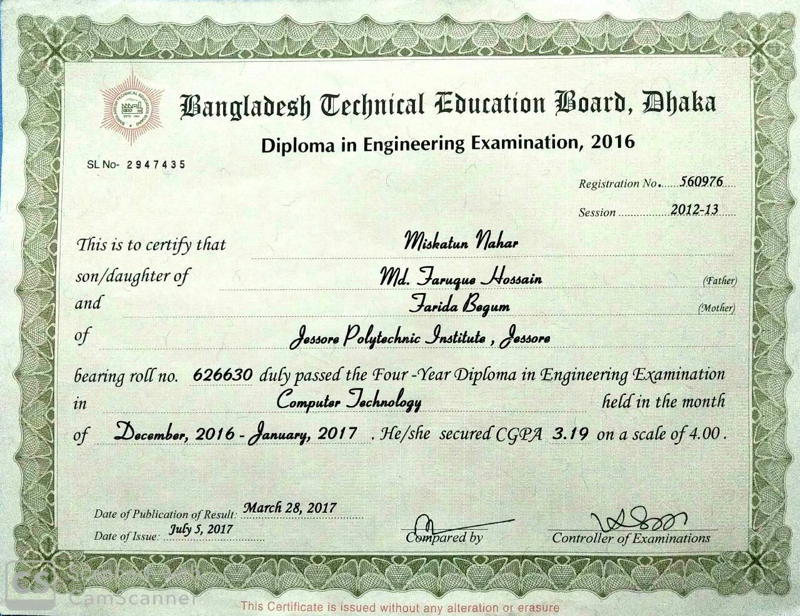 Bangladesh Technical Education Board, Dhaka
Diploma in Engineering Examination, 2016
SL No- 2947435
Registration No. 560976
Session 2012-13
This is to certify that Miskatun Nahar
son/daughter of Md. Faruque Hossain (Father)
and Farida Begum (Mother)
of Jessore Polytechnic Institute , Jessore
bearing roll no. 626630 duly passed the Four -Year Diploma in Engineering Examination
in Computer Technology held in the month
of December, 2016 - January, 2017 . He/she secured CGPA 3.19 on a scale of 4.00 .
Date of Publication of Result: March 28, 2017
Date of Issue: July 5, 2017
Compared by
Controller of Examinations
CS
CamScanner
This Certificate is issued without any alteration or erasure